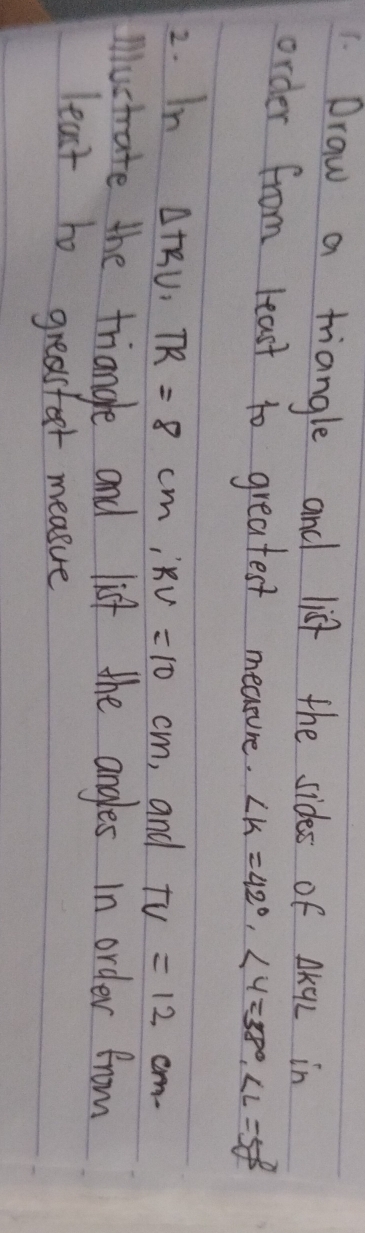 1. Draw a triangle and list the sides of ΔKYL in
order from least to greatest measure. ∠K = 42°, ∠Y = 38°, ∠L =
2. In ΔTRU, TR = 8 cm, RU = 10 cm, and TU = 12 cm.
Illustrate the triangle and list the angles in order from
least to greatest measure